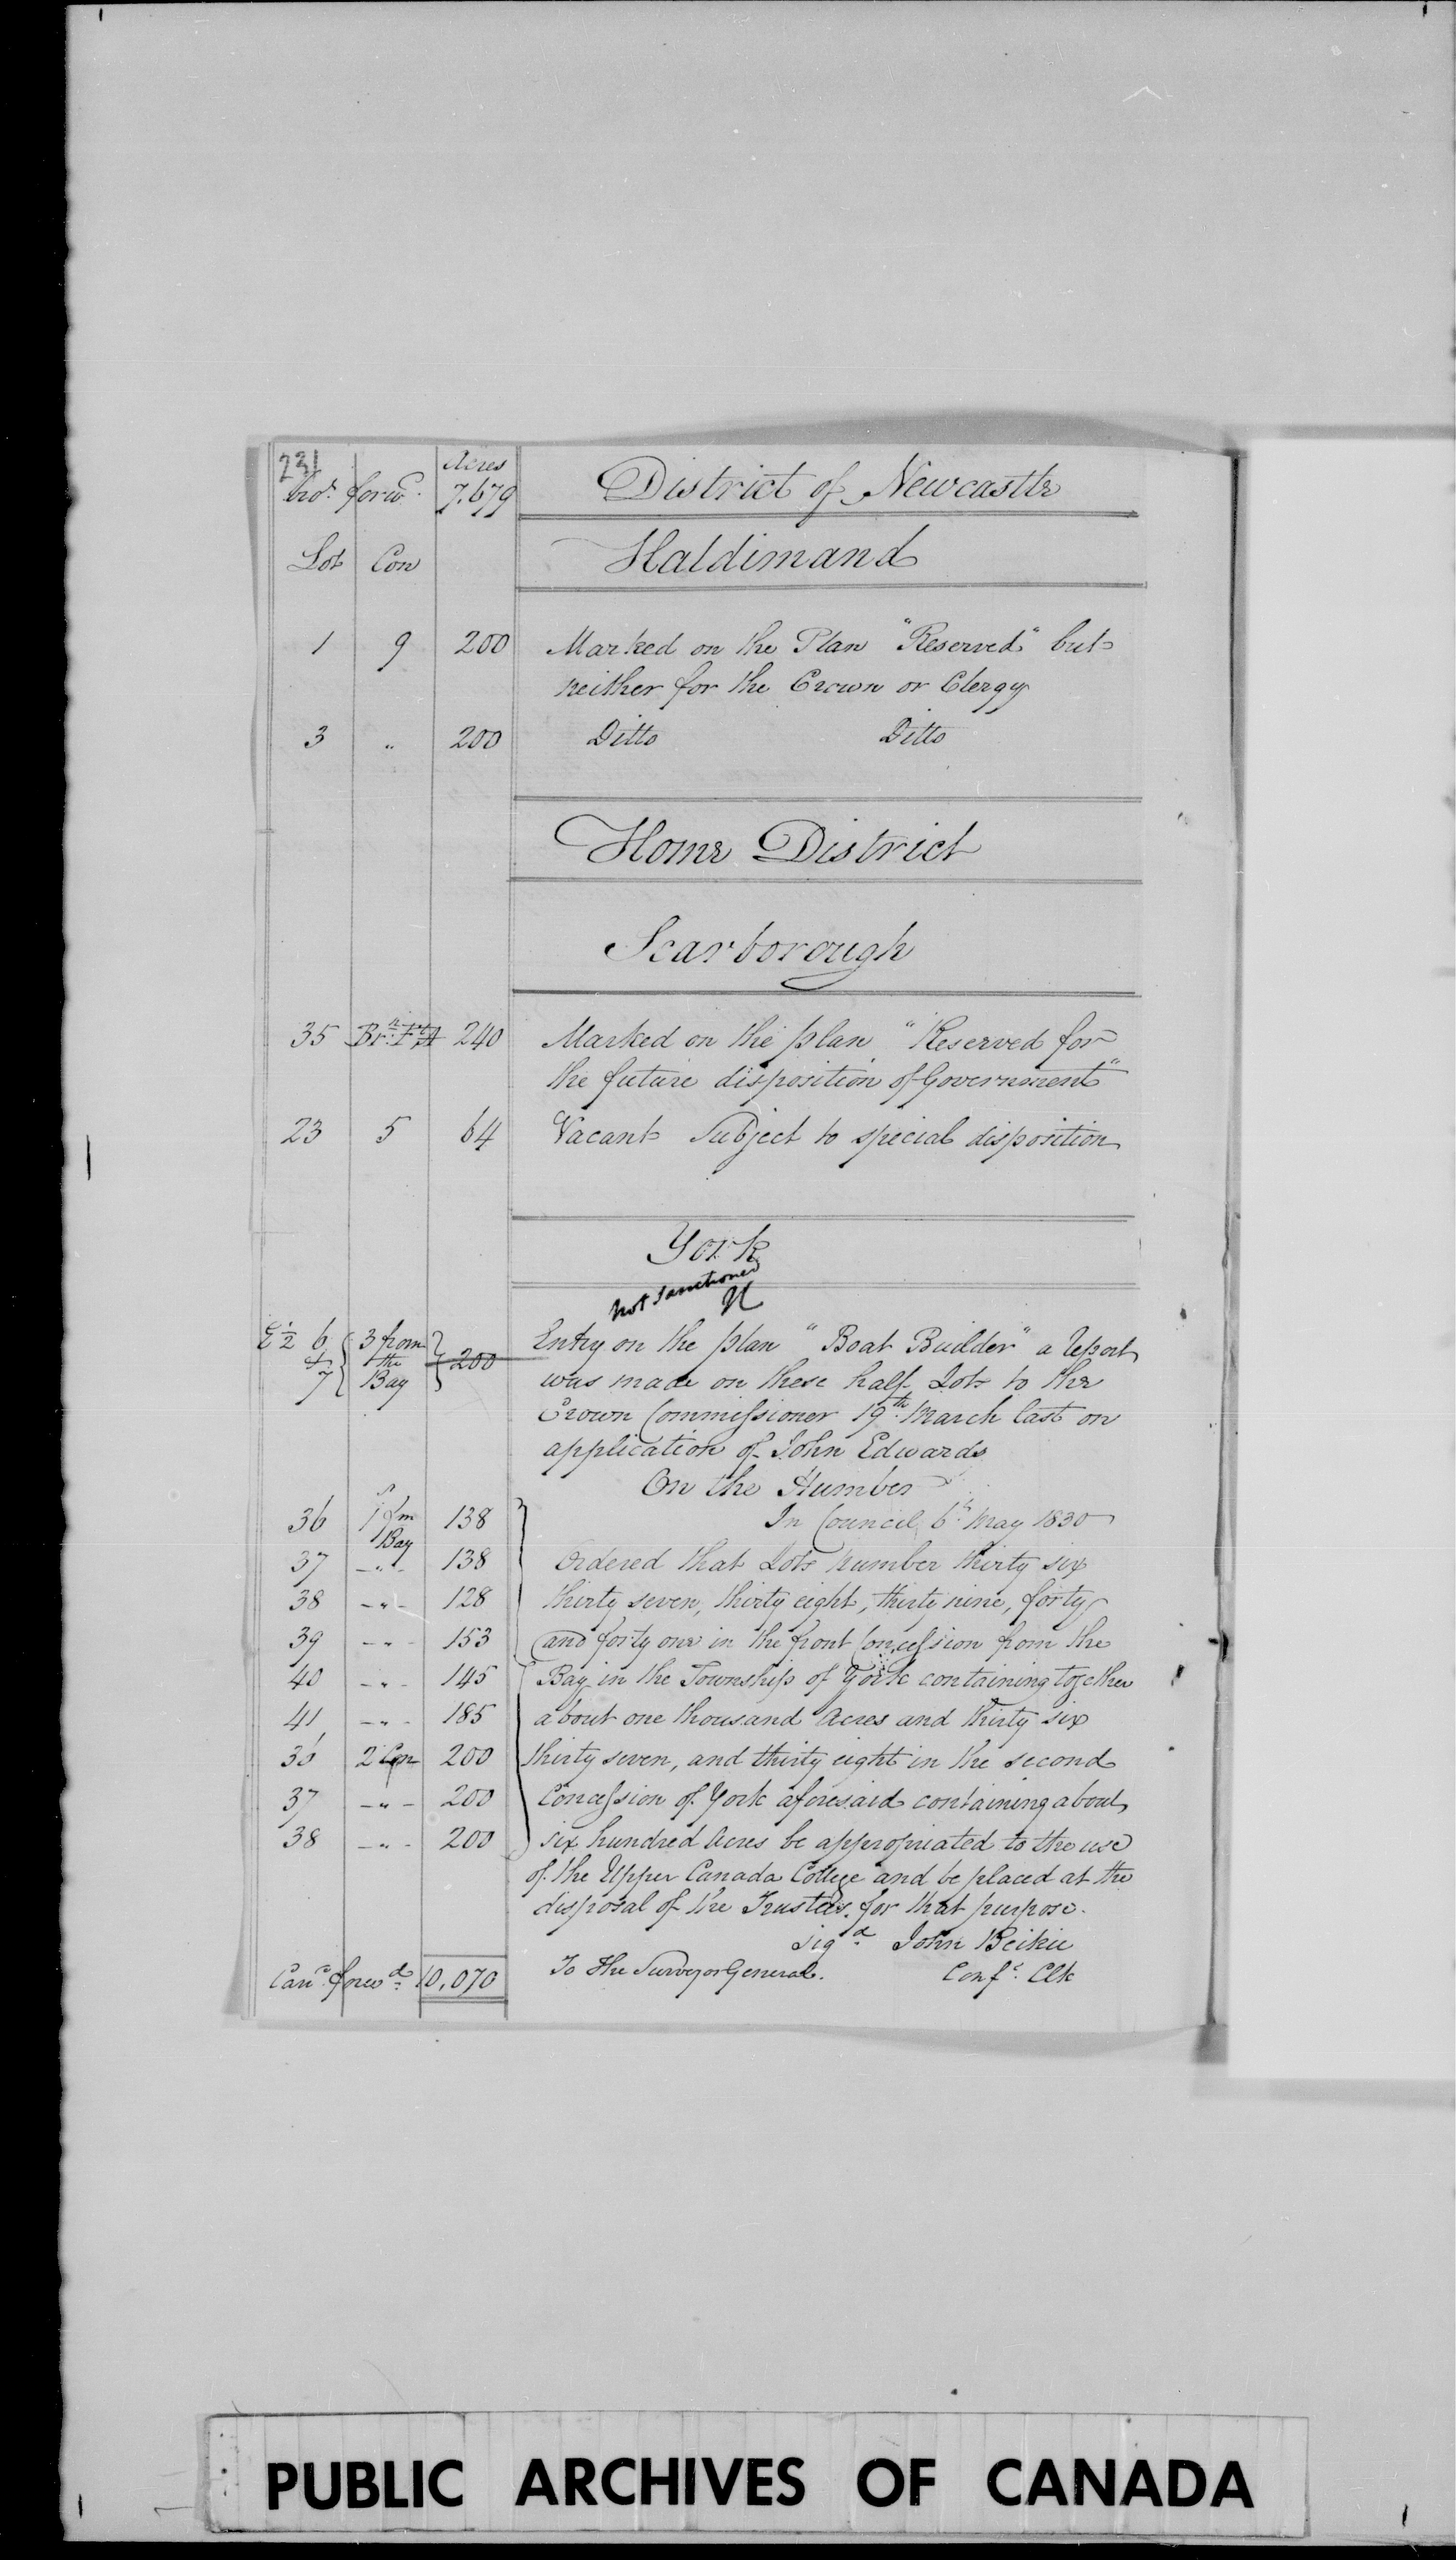 231
Acres
bro.d forw.d 7.679 District of Newcastle
Lot Con Haldimand
1 9 200 Marked on the Plan "Reserved" but
neither for the Crown or Clergy
3 " 200 Ditto Ditto
Home District
Scarborough
35 240 Marked on the plan "Reserved for
the future disposition of Government"
23 5 64 Vacant Subject to special disposition
York
not sanctioned
E ½ 6 3 from 200 Entry on the plan "Boat Builder" a Report
& 7 the Bay was made on these half Lots to the
Crown Commissioner 19th March last on
application of John Edwards
On the Humber
36 1 fm Bay 138 In Council 6th May 1830
37 -"- 138 Ordered that Lots number thirty six
38 -"- 128 thirty seven, thirty eight, thirty nine, forty
39 -"- 153 and forty one in the front Concession from the
40 -"- 145 Bay in the Township of York containing together
41 -"- 185 about one thousand Acres and thirty six
36 2 Con 200 thirty seven, and thirty eight in the second
37 -"- 200 Concession of York aforesaid containing about
38 -"- 200 six hundred Acres be appropriated to the use
of the Upper Canada College and be placed at the
disposal of the Trustees for that purpose.
Sigd John Beikie
Card forwd 10,070 To the Surveyor General. Confl Clk
PUBLIC ARCHIVES OF CANADA